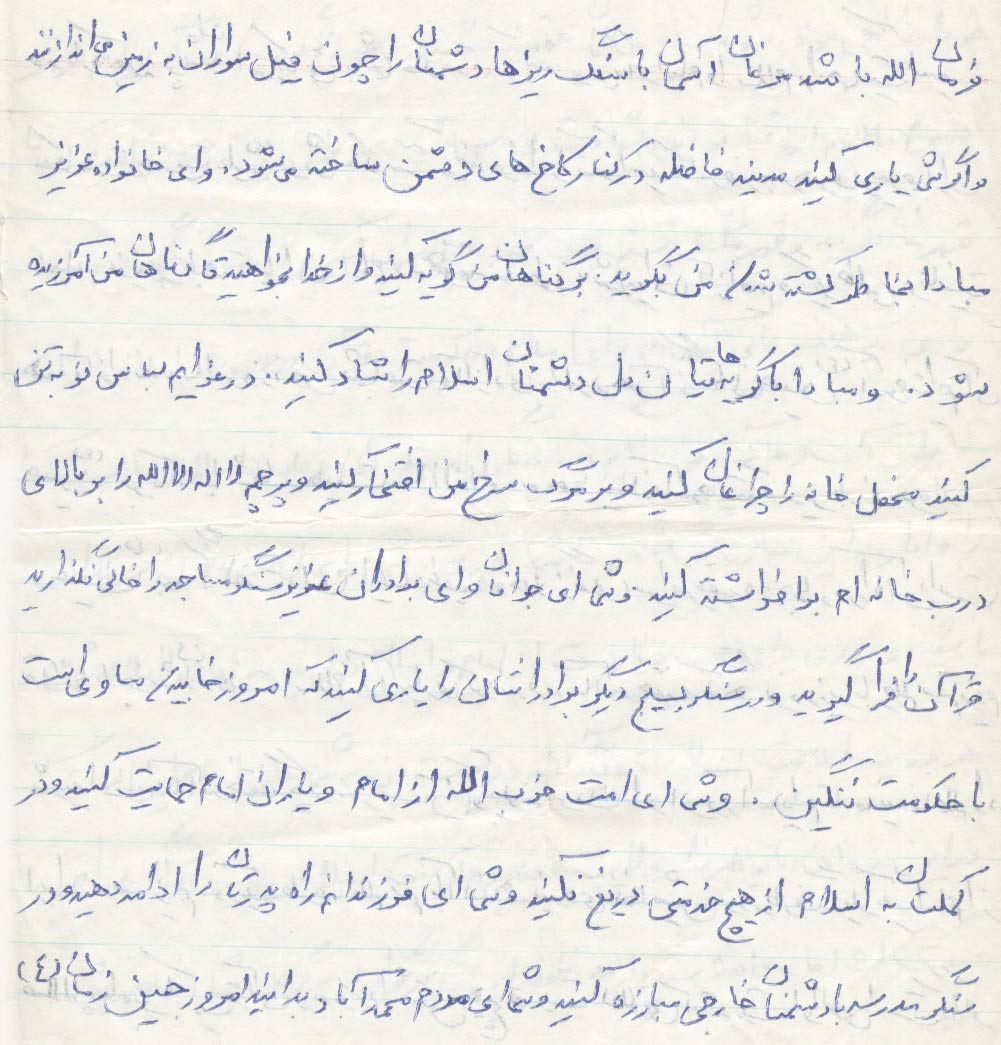 فرمان الله باشد مرغان آسمان با سنگ ریزها دشمنان را چون فیل سواران به زمین می اندازند
واگرش یاری کنید مدینه فاضله در کنار کاخ های دشمن ساخته می شود. وای خانواده عزیز
مبادا بخاطر کشته شدن من بگرید. برگناهان من گریه کنید و از خدا بخواهید تا گناهان من آمرزیده
شود. و مبادا با گریه هایتان دل دشمنان اسلام را شاد کنید. در عزایم لباس نو به تن
کنید محفل خانه را چراغان کنید و بر مرگ سرخ من افتخار کنید و پرچم لا اله الا الله را بر بالای
درب خانه ام برافراشته کنید وشما ای جوانان وای برادران عزیز سنگر مساجد را خالی نگذارید
قرآن را فرا گیرید و در سنگر بسیج دیگر برادرانتان را یاری کنید که امروز خانه ما وی است
با حکومت ننگین. وشما ای امت حزب الله از امام و یاران امام حمایت کنید و در
کمکتان به اسلام از هیچ خدمتی دریغ نکنید وشما ای فرزندانم راه پدرتان را ادامه دهید و در
سنگر مدرسه با دشمنان خارجی مبارزه کنید وشما ای مردم محمدآباد بدانید امروز حسین زمان (٤)